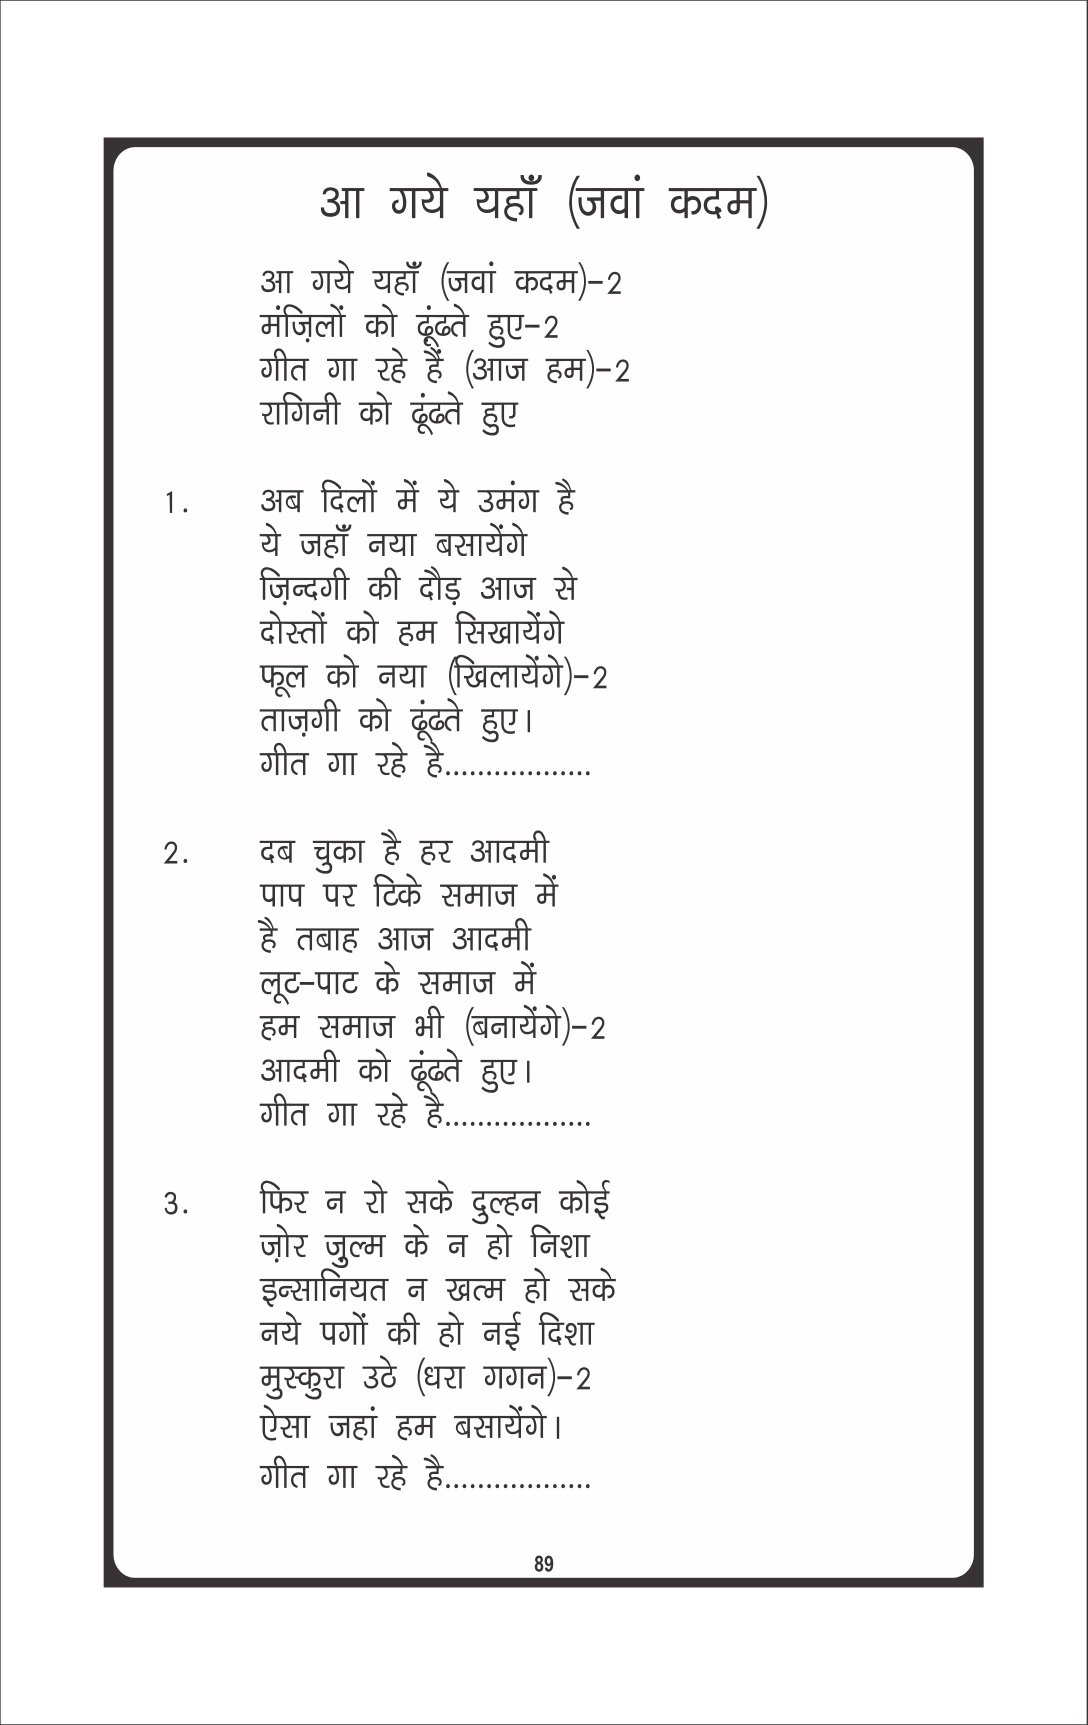 आ गये यहाँ (जवां कदम)
आ गये यहाँ (जवां कदम)-2
मंज़िलों को ढूंढते हुए-2
गीत गा रहे हैं (आज हम)-2
रागिनी को ढूंढते हुए
1. अब दिलों में ये उमंग है
ये जहाँ नया बसायेंगे
ज़िन्दगी की दौड़ आज से
दोस्तों को हम सिखायेंगे
फूल को नया (खिलायेंगे)-2
ताज़गी को ढूंढते हुए।
गीत गा रहे है..................
2. दब चुका है हर आदमी
पाप पर टिके समाज में
है तबाह आज आदमी
लूट-पाट के समाज में
हम समाज भी (बनायेंगे)-2
आदमी को ढूंढते हुए।
गीत गा रहे है..................
3. फिर न रो सके दुल्हन कोई
ज़ोर जु़ल्म के न हो निशा
इन्सानियत न खत्म हो सके
नये पगों की हो नई दिशा
मुस्कुरा उठे (धरा गगन)-2
ऐसा जहां हम बसायेंगे।
गीत गा रहे है..................
89